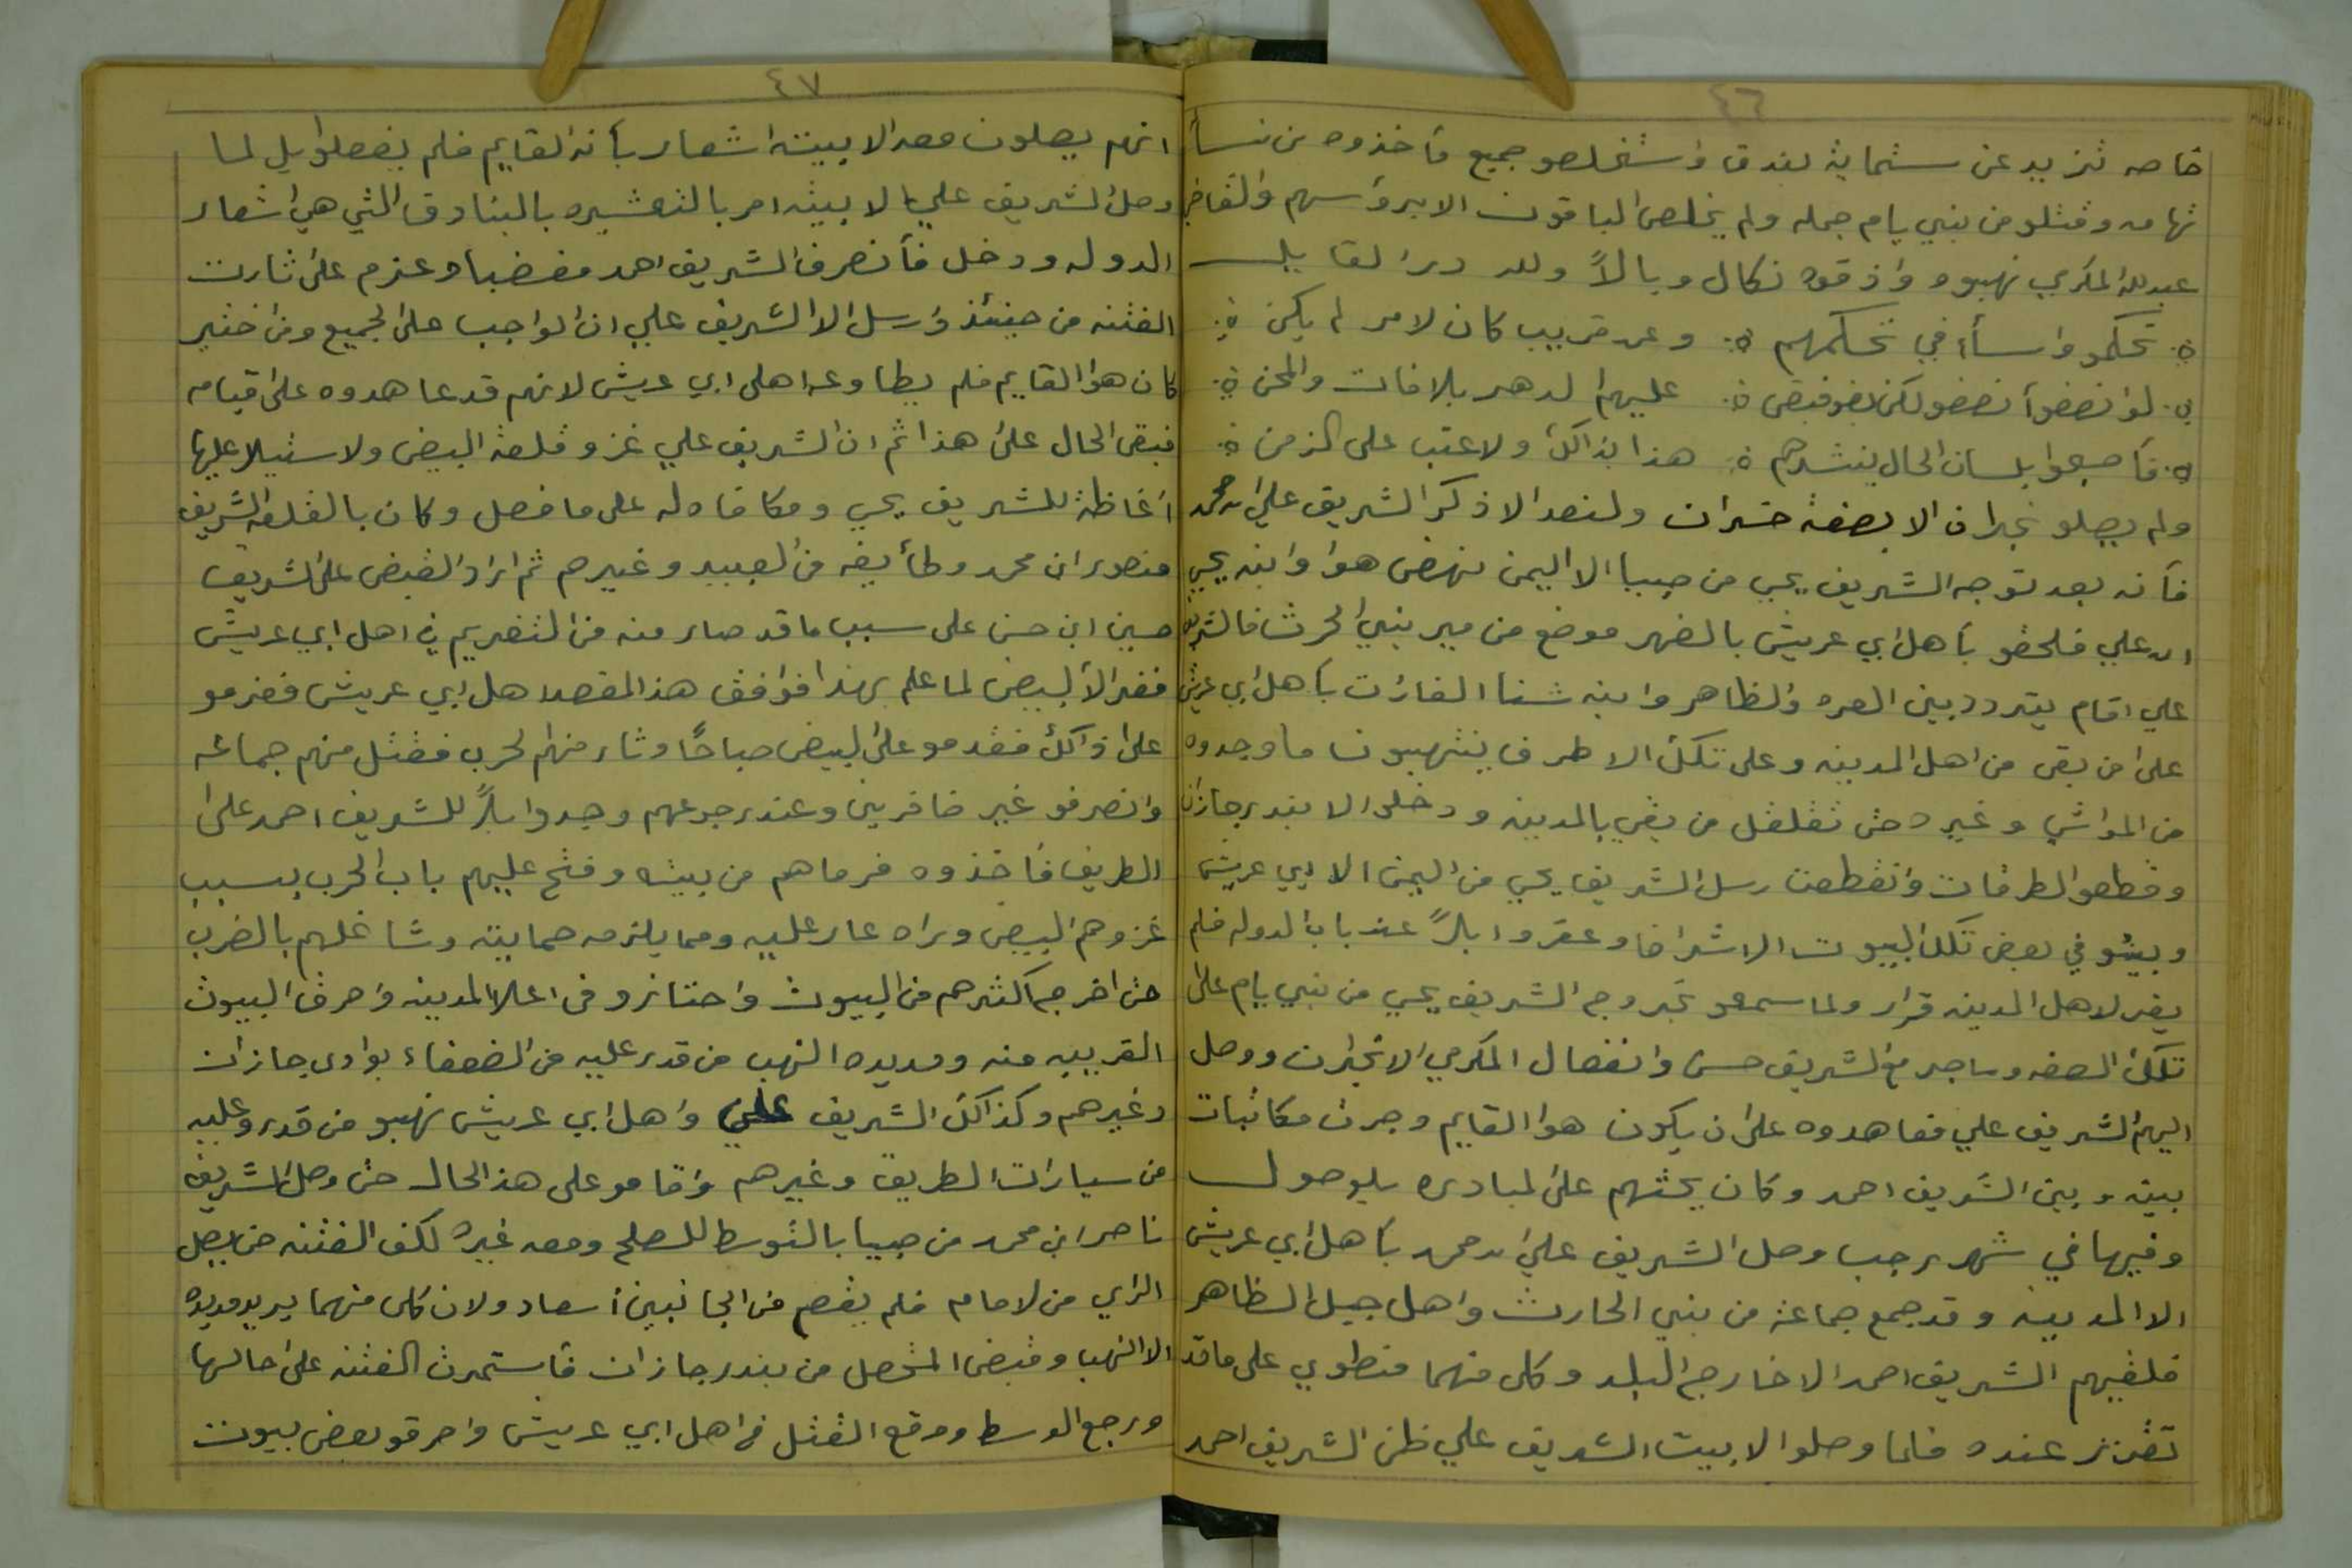 ٤٦
خاصه تزيد عن ستمايه بندق واستخلصو جميع ما خذوه من نسأ
تهامه وقتلو من بني يام جمله ولم يخلص الباقون الا بروسهم والقاضي
عبدالله المكرمي نهبوه واذقوه نكال وبالاً ولله در القايل
تحكمو واسأ في تحكمهم وعن قريب كان لامر لم يكن
لو انصفوا نصفو لكن بغو فبقى عليهم الدهر بالافات والمحن
فأصبحوا بلسان الحال ينشدهم هذا بذاكك ولا عتب على الزمن
ولم يصلو نجران الا بصفة خسران ولنعد الا ذكر الشريف علي ابن محمد
فأنه بعد توجه الشريف يحيي من صبيا الا اليمن نهض هوا وابنه يحيي
ابن علي فلحقو بأهل ابي عريش بالضهر موضع من مير بني الحرث فالشريف
علي اقام يتردد بين العره والظاهر وابنه شنا الغارات بأهل ابي عريش
على من بقي من اهل المدينه وعلى تلكك الاطرف ينتهبون ما وجدوه
من المواشي وغيره حتى تقلقل من بقي بالمدينه ودخلوا الا بندر جازان
وقطعو الطرقات وانقطعت رسل الشريف يحيي من اليمن الا ابي عريش
وبيتو في بعض تلكك البيوت الاشراف وعقروا ابلاً عند باب الدوله فلم
يقر لاهل المدينه قرار ولما سمعو بخروج الشريف يحيي من بني يام على
تلكك الصفه وما جر مع الشريف حسن وانفصال المكرمي الا نجران ووصل
اليهم الشريف علي فعاهدوه على ان يكون هوا القايم وجرت مكاتبات
بينه وبين الشريف احمد وكان يحثهم على المبادره بالوصول
وفيها في شهر رجب وصل الشريف علي ابن محمد بأهل ابي عريش
الا المدينه وقد جمع جماعة من بني الحارث واهل جبل الظاهر
فلقيهم الشريف احمد الا خارج البلد وكل منهما منطوي على ما قد
تقرر عنده فلما وصلوا الا بيت الشريف علي ظن الشريف احمد
٤٧
انهم يصلون معه الا بيته اشعار بأنه القايم فلم يفعلوا بل لما
وصل الشريف علي الا بيته امر بالتعشيره بالبنادق التي هي اشعار
الدوله ودخل فأنصرف الشريف احمد مغضبا وعزم على ثارت
الفتنه من حينئذ وارسل الا الشريف علي ان الواجب على الجميع ومن اختير
كان هوا القايم فلم يطاوعه اهل ابي عريش لانهم قد عاهدوه على قيامه
فبقى الحال على هذا ثم ان الشريف علي غزو قلعة البيض ولاستيلا عليها
اغاظة للشريف يحيي ومكافاه له على ما فعل وكان بالقلعه الشريف
منصور ابن محمد وطأيفه من العبيد وغيرهم ثم اراد القبض على الشريف
حسين ابن حسن على سبب ما قد صار منه من التغريم في اهل ابي عريش
ففر الا البيض لما علم بهذا فوافق هذا المقصد اهل ابي عريش فعزمو
على ذاكك فقدمو على البيض صباحًا وثار منهم الحرب فقتل منهم جماعه
وانصرفو غير ضافرين وعند رجوعهم وجدوا ابلاً للشريف احمد على
الطريق فأخذوه فرماهم من بيته وفتح عليهم باب الحرب بسبب
غزوهم البيض وراه عار عليه ومما يلزمه حمايته وشاغلهم بالضرب
حتى اخرج اكثرهم من البيوت واحتازو في اعلا المدينه واحرق البيوت
القريبه منه ومديده النهب من قدر عليه من الضعفاء بوادي جازان
وغيرهم وكذاكك الشريف علي واهل ابي عريش نهبو من قدرو عليه
من سيارات الطريق وغيرهم واقامو على هذا الحال حتى وصل الشريف
ناصر ابن محمد من صبيا بالتوسط للصلح ومعه غيره لكف الفتنه حتى يصل
الراي من لامام فلم يقع من الجانبين أسعاد ولان كل منهما يريد مديده
الا النهب وقبض المتحصل من بندر جازان فأستمرت الفتنه على حالها
ورجع الوسط ووقع القتل في اهل ابي عريش واحرقو بعض بيوت